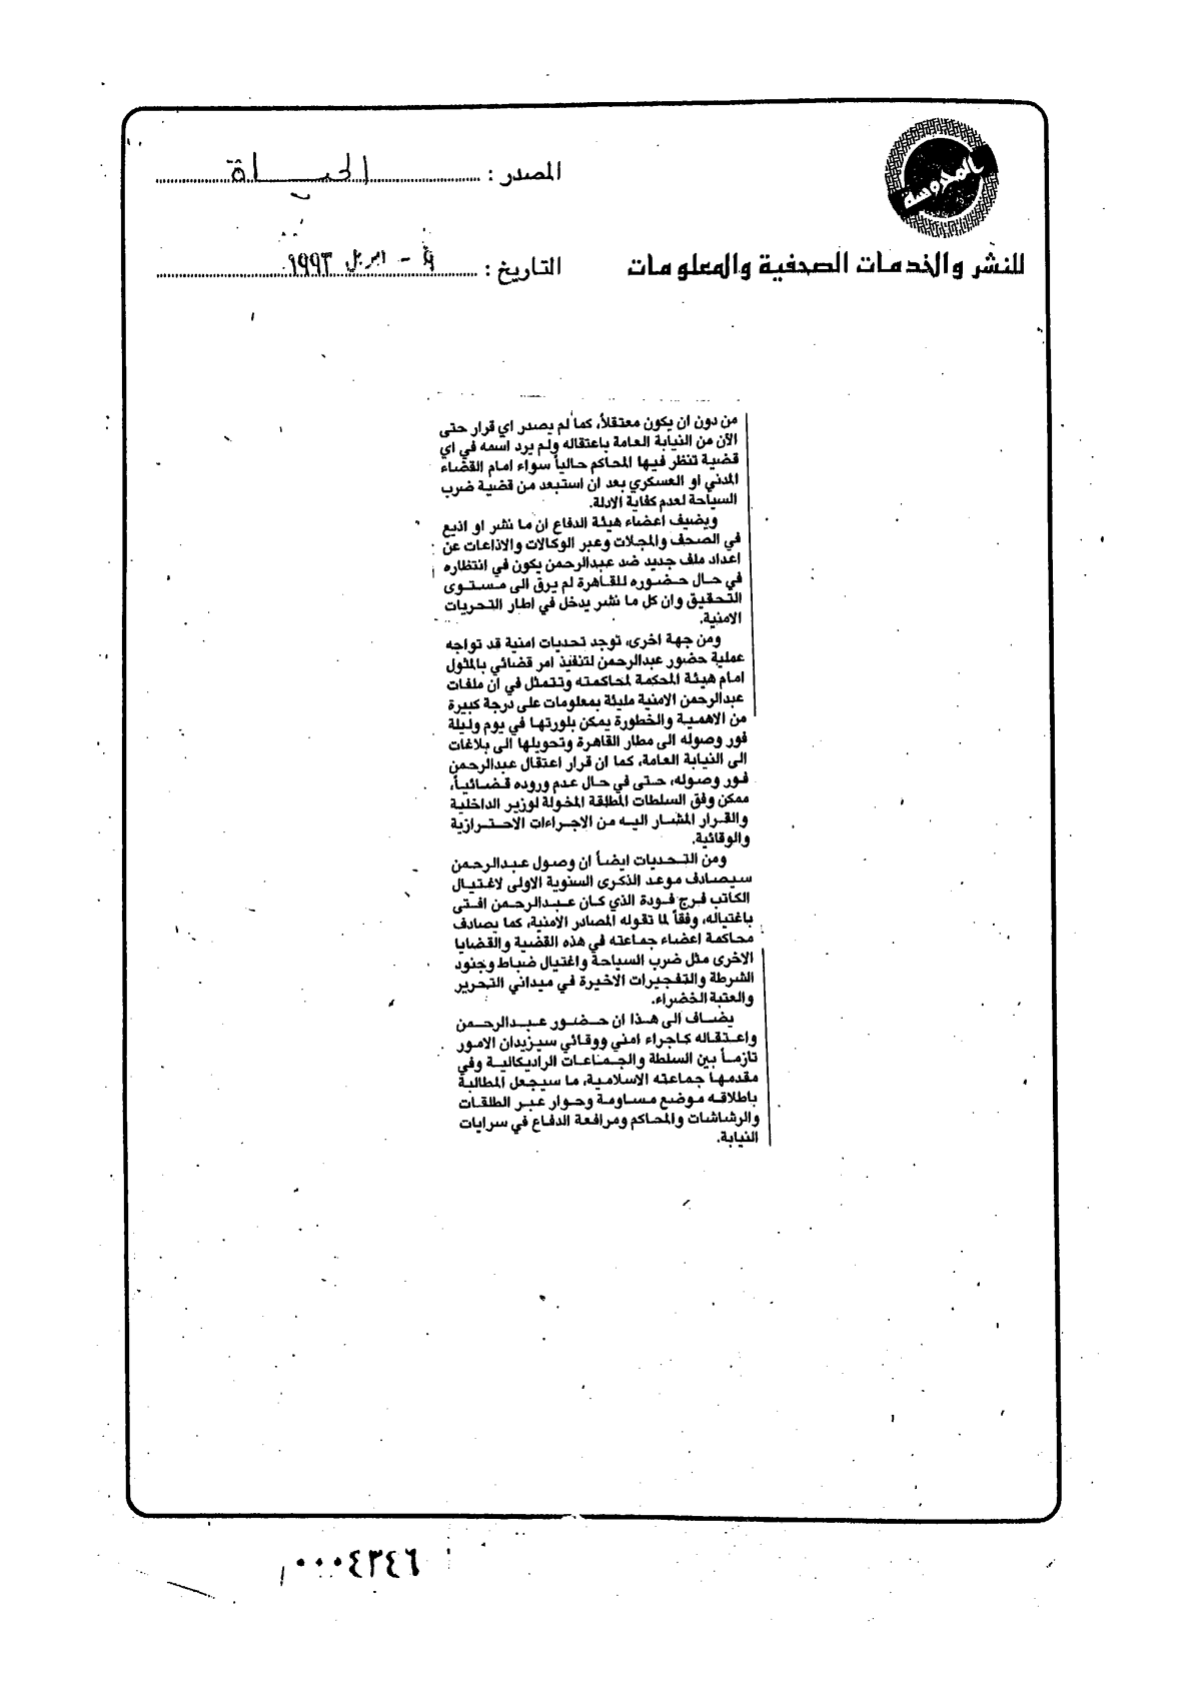 بالمحروسة
المصدر : الحياة
للنشر والخدمات الصحفية والمعلومات
التاريخ : ٩ - ابريل ١٩٩٣
من دون ان يكون معتقلاً، كما لم يصدر اي قرار حتى
الآن من النيابة العامة باعتقاله ولم يرد اسمه في اي
قضية تنظر فيها المحاكم حالياً سواء امام القضاء
المدني او العسكري بعد ان استبعد من قضية ضرب
السياحة لعدم كفاية الادلة.
ويضيف اعضاء هيئة الدفاع ان ما نشر او اذيع
في الصحف والمجلات وعبر الوكالات والاذاعات عن
اعداد ملف جديد ضد عبدالرحمن يكون في انتظاره
في حال حضوره للقاهرة لم يرق الى مستوى
التحقيق وان كل ما نشر يدخل في اطار التحريات
الامنية.
ومن جهة اخرى، توجد تحديات امنية قد تواجه
عملية حضور عبدالرحمن لتنفيذ امر قضائي بالمثول
امام هيئة المحكمة لمحاكمته وتتمثل في ان ملفات
عبدالرحمن الامنية مليئة بمعلومات على درجة كبيرة
من الاهمية والخطورة يمكن بلورتها في يوم وليلة
فور وصوله الى مطار القاهرة وتحويلها الى بلاغات
الى النيابة العامة، كما ان قرار اعتقال عبدالرحمن
فور وصوله، حتى في حال عدم وروده قضائياً،
ممكن وفق السلطات المطلقة المخولة لوزير الداخلية
والقرار المشار اليه من الاجراءات الاحترازية
والوقائية.
ومن التحديات ايضاً ان وصول عبدالرحمن
سيصادف موعد الذكرى السنوية الاولى لاغتيال
الكاتب فرج فودة الذي كان عبدالرحمن افتى
باغتياله، وفقاً لما تقوله المصادر الامنية، كما يصادف
محاكمة اعضاء جماعته في هذه القضية والقضايا
الاخرى مثل ضرب السياحة واغتيال ضباط وجنود
الشرطة والتفجيرات الاخيرة في ميداني التحرير
والعتبة الخضراء.
يضاف الى هذا ان حضور عبدالرحمن
واعتقاله كاجراء امني ووقائي سيزيدان الامور
تازماً بين السلطة والجماعات الراديكالية وفي
مقدمها جماعته الاسلامية، ما سيجعل المطالبة
باطلاقه موضع مساومة وحوار عبر الطلقات
والرشاشات والمحاكم ومرافعة الدفاع في سرايات
النيابة.
٠٠٠٤٣٤٦